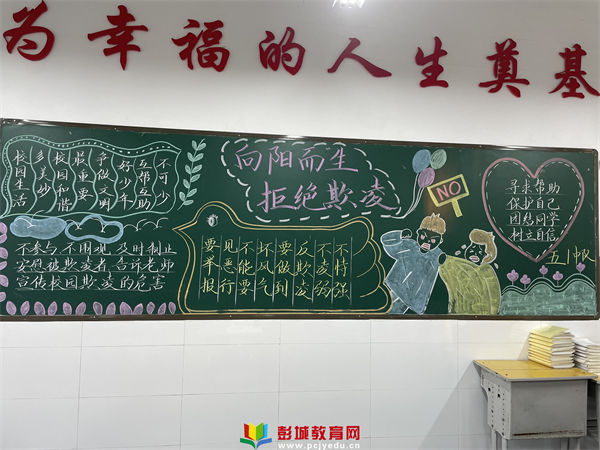 为幸福的人生奠基
校园生活
多美妙
校园和谐
最重要
争做文明
好少年
互帮互助
不可少
向阳而生
拒绝欺凌
不参与 不围观 及时制止
安慰被欺凌者 告诉老师
宣传校园欺凌的危害
不持强
不凌弱
反欺凌
要做到
坏风气
不能要
见恶行
要举报
NO
寻求帮助
保护自己
团结同学
树立自信
五1中队
彭城教育网
www.pcjyedu.cn